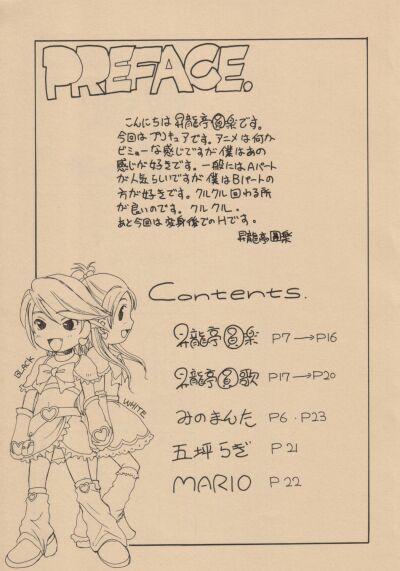 PREFACE.
こんにちは昇龍亭圓楽です。
今回はプリキュアです。アニメは何か
ビミョーな感じですが僕はあの
感じが好きです。一般にはAパート
が人気らしいですが僕はBパートの
方が好きです。クルクル回わる所
が良いのです。クルクル.
あと今回は変身後でのHです。
昇龍亭圓楽
Contents.
昇龍亭圓楽 P7→P16
昇龍亭圓歌 P17→P20
みのまんた P6・P23
五坪らぎ P21
MARIO P22
BLACK
WHITE